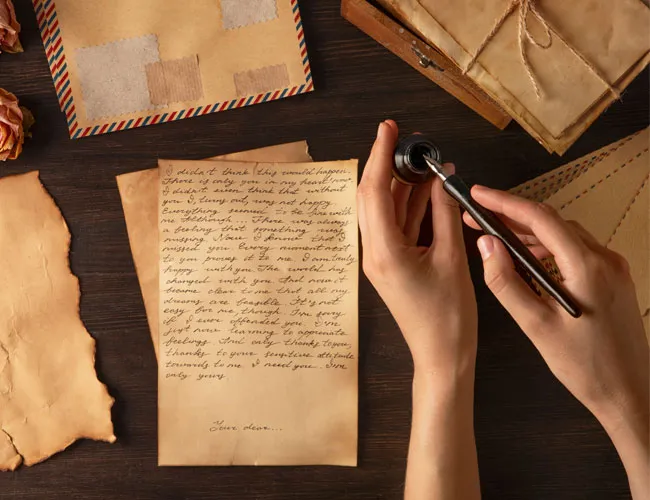 I didn't think this would happen.
There is only you in my heart now
I didn't even think that without
you I, turns out, was not happy.
Everything seemed to be fine with
me although... There was always
a feeling that something was
missing. Now I know that I
missed you. Every moment next
to you proves it to me. I am truly
happy with you. The world has
changed with you. And now it
became clear to me that all my
dreams are feasible. It's not
easy for me, though. I'm sorry
if I ever offended you. I'm
just now learning to appreciate
feelings. And only thanks to you,
thanks to your sensitive attitude
towards to me. I need you. I'm
only yours
Your dear...